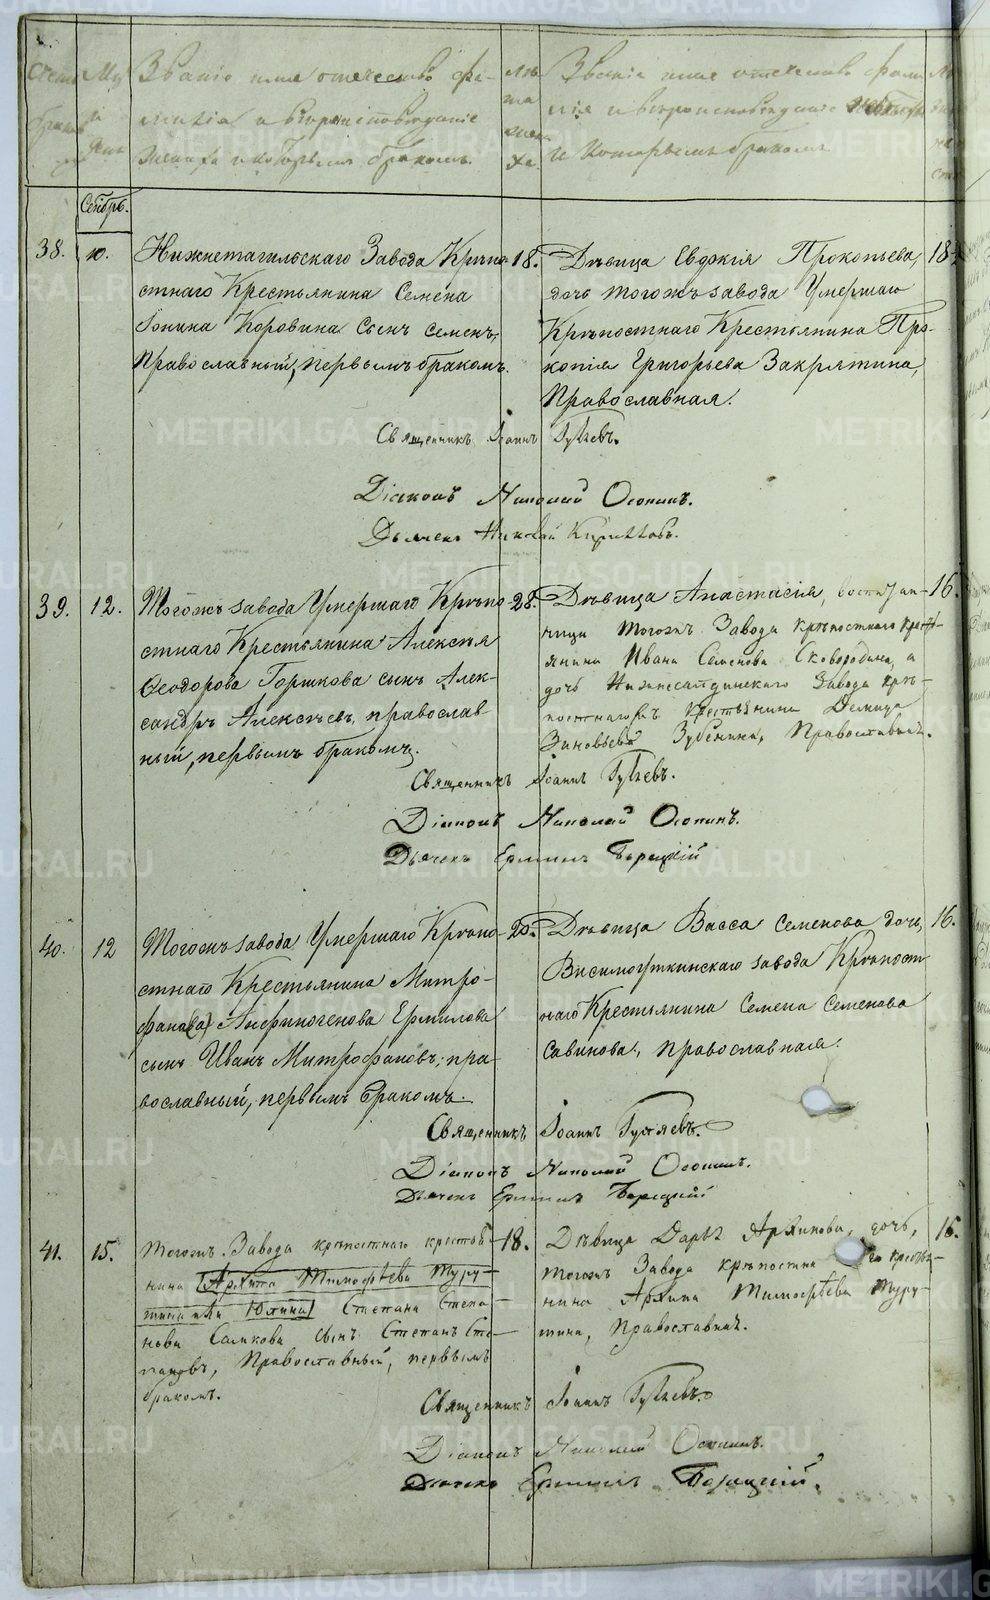 Званіе имя отечество фа-
милія и вѣроисповѣданіе
жениха и которымъ бракомъ.
лѣ
та
жени
ха.
Званіе имя отечество фами
лія и вѣроисповѣданіе невѣсты
и которымъ бракомъ
Сентбрь.
38. 10. Нижнетагильскаго Завода Крѣпо
стнаго Крестьянина Семена
Іонина Коровина сынъ Семенъ,
Православный, первымъ бракомъ.
18. Дѣвица Евдокія Прокопьева,
дочь тогожъ завода Умершаго
Крѣпостнаго Крестьянина Про-
копія Григорьева Закрятина,
Православная.
18
Священникъ Іоаннъ Гуляевъ.
Діаконъ Николай Осопинъ.
Дьячекъ Николай Кирилловъ.
39. 12. Тогожъ завода Умершаго Крѣпо
стнаго Крестьянина Алексѣя
Ѳеодорова Горшкова сынъ Алек-
сандръ Алексѣевъ, православ
ный, первымъ бракомъ.
28. Дѣвица Анастасія, воспитан-
ница тогожъ Завода крѣпостнаго крест-
янина Ивана Семенова Сковородина, а
дочь Нижнесалдинскаго Завода крѣ-
постнаго Крестьянина Демида
Зиновьева Зубенина, Православная.
16.
Священникъ Іоаннъ Гуляевъ.
Діаконъ Николай Осопинъ.
Дьячекъ Ермилъ Борецкій
40. 12 Тогожъ завода Умершаго Крѣпо-
стнаго Крестьянина Митро-
фанова Анфиногенова Ермилова
сынъ Иванъ Митрофановъ, пра-
вославный, первымъ бракомъ.
20. Дѣвица Васса Семенова дочь,
Висимоуткинскаго завода Крѣпост
наго Крестьянина Семена Семенова
Савинова, православная.
16.
Священникъ Іоаннъ Гуляевъ.
Діаконъ Николай Осопинъ.
Дьячекъ Ермилъ Борецкій
41. 15. Тогожъ Завода крѣпостнаго крестья
нина Архипа Тимофѣева Туру-
тина или Юхина Степана Степа-
нова Салкова сынъ Степанъ Сте-
пановъ, Православный, первымъ
бракомъ.
18. Дѣвица Дарья Архипова, дочь,
тогожъ Завода крѣпостна го крестья
нина Архипа Тимофѣева Туру-
тина, Православная.
16.
Священникъ Іоаннъ Гуляевъ.
Діаконъ Николай Осопинъ.
Дьячекъ Ермилъ Борецкій.
METRIKI.GASU-URAL.RU